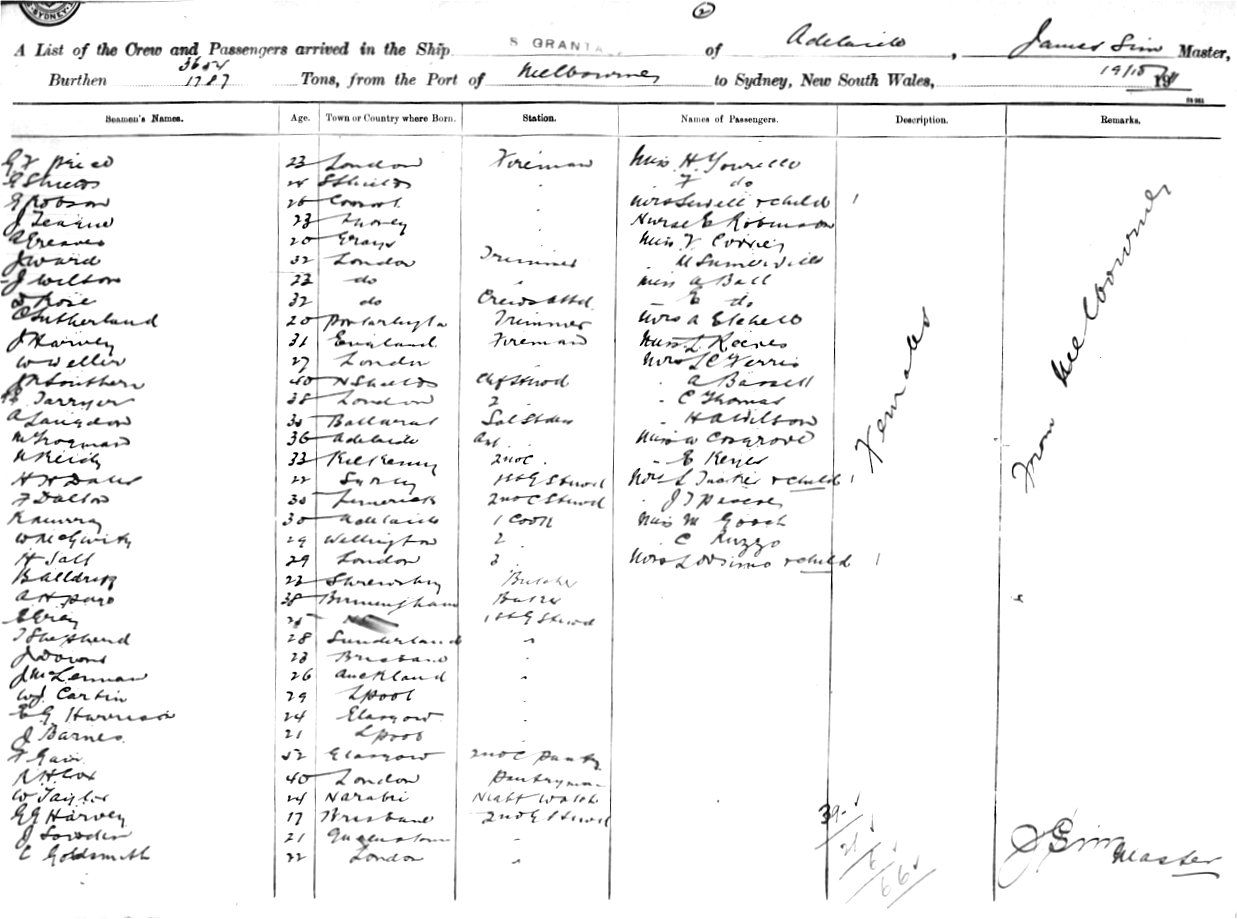 SYDNEY
2
A List of the Crew and Passengers arrived in the Ship S GRANTA of Adelaide, James Sim Master,
Burthen 3654 1787 Tons, from the Port of Melbourne to Sydney, New South Wales, 19/10 191
Seamen's Names. Age. Town or Country where Born. Station. Names of Passengers. Description. Remarks.
G F Price 23 London Fireman Miss H.
G Shields 24 S Shields " F do
G Robson 26 Mrs Sewell & child 1
J Teague 23 Nurse E Robinson
A Greaves 20 Grays Miss
J Ward 32 London Trimmer
J Wilson 22 do " Miss A Ball
Rose 32 do Crews Attd " E do
C Sutherland 20 Trimmer Mrs A
J Harvey 31 England Fireman Miss L Reeves
W Weller 27 London Mrs L C Ferris
J R Southern 40 N Shields Chf Stwd " A Bassett
Tarryer 38 London 2 " C Thomas
A Langdon 30 Ballarat Sal Stdss " H A Wilson
36 Adelaide Miss W Cosgrove
N Reidy 33 Kilkenny 2nd C " E Keyes
H W Dales 22 Sydney 1st G Stwd Mrs L Tucker & child 1
F Dalton 30 Limerick 2nd C Stwd " J T
R Murray 30 Adelaide 1 Cook Miss M Gooch
29 Wellington 2 " C Ruzzo
H Salt 29 London 3 Mrs & child 1
22 Shrewsbury Butcher
A H 38 Birmingham Baker
E Grey 25 1st G Stwd
T Shepherd 28 Sunderland "
J 23 Brisbane "
J McLennan 26 Auckland "
W J 29 Lpool "
E G Harrison 24 Glasgow "
J Barnes 21 Lpool
F Gair 52 Glasgow 2nd C Pantry
R H Cox 40 London Pantryman
W Taylor 24 Narabri Night Watch
G G Harvey 17 Brisbane 2nd G Stwd
J 21 Queenstown "
C Goldsmith 22 London "
Females
From Melbourne
39
21
6
66
J Sim Master